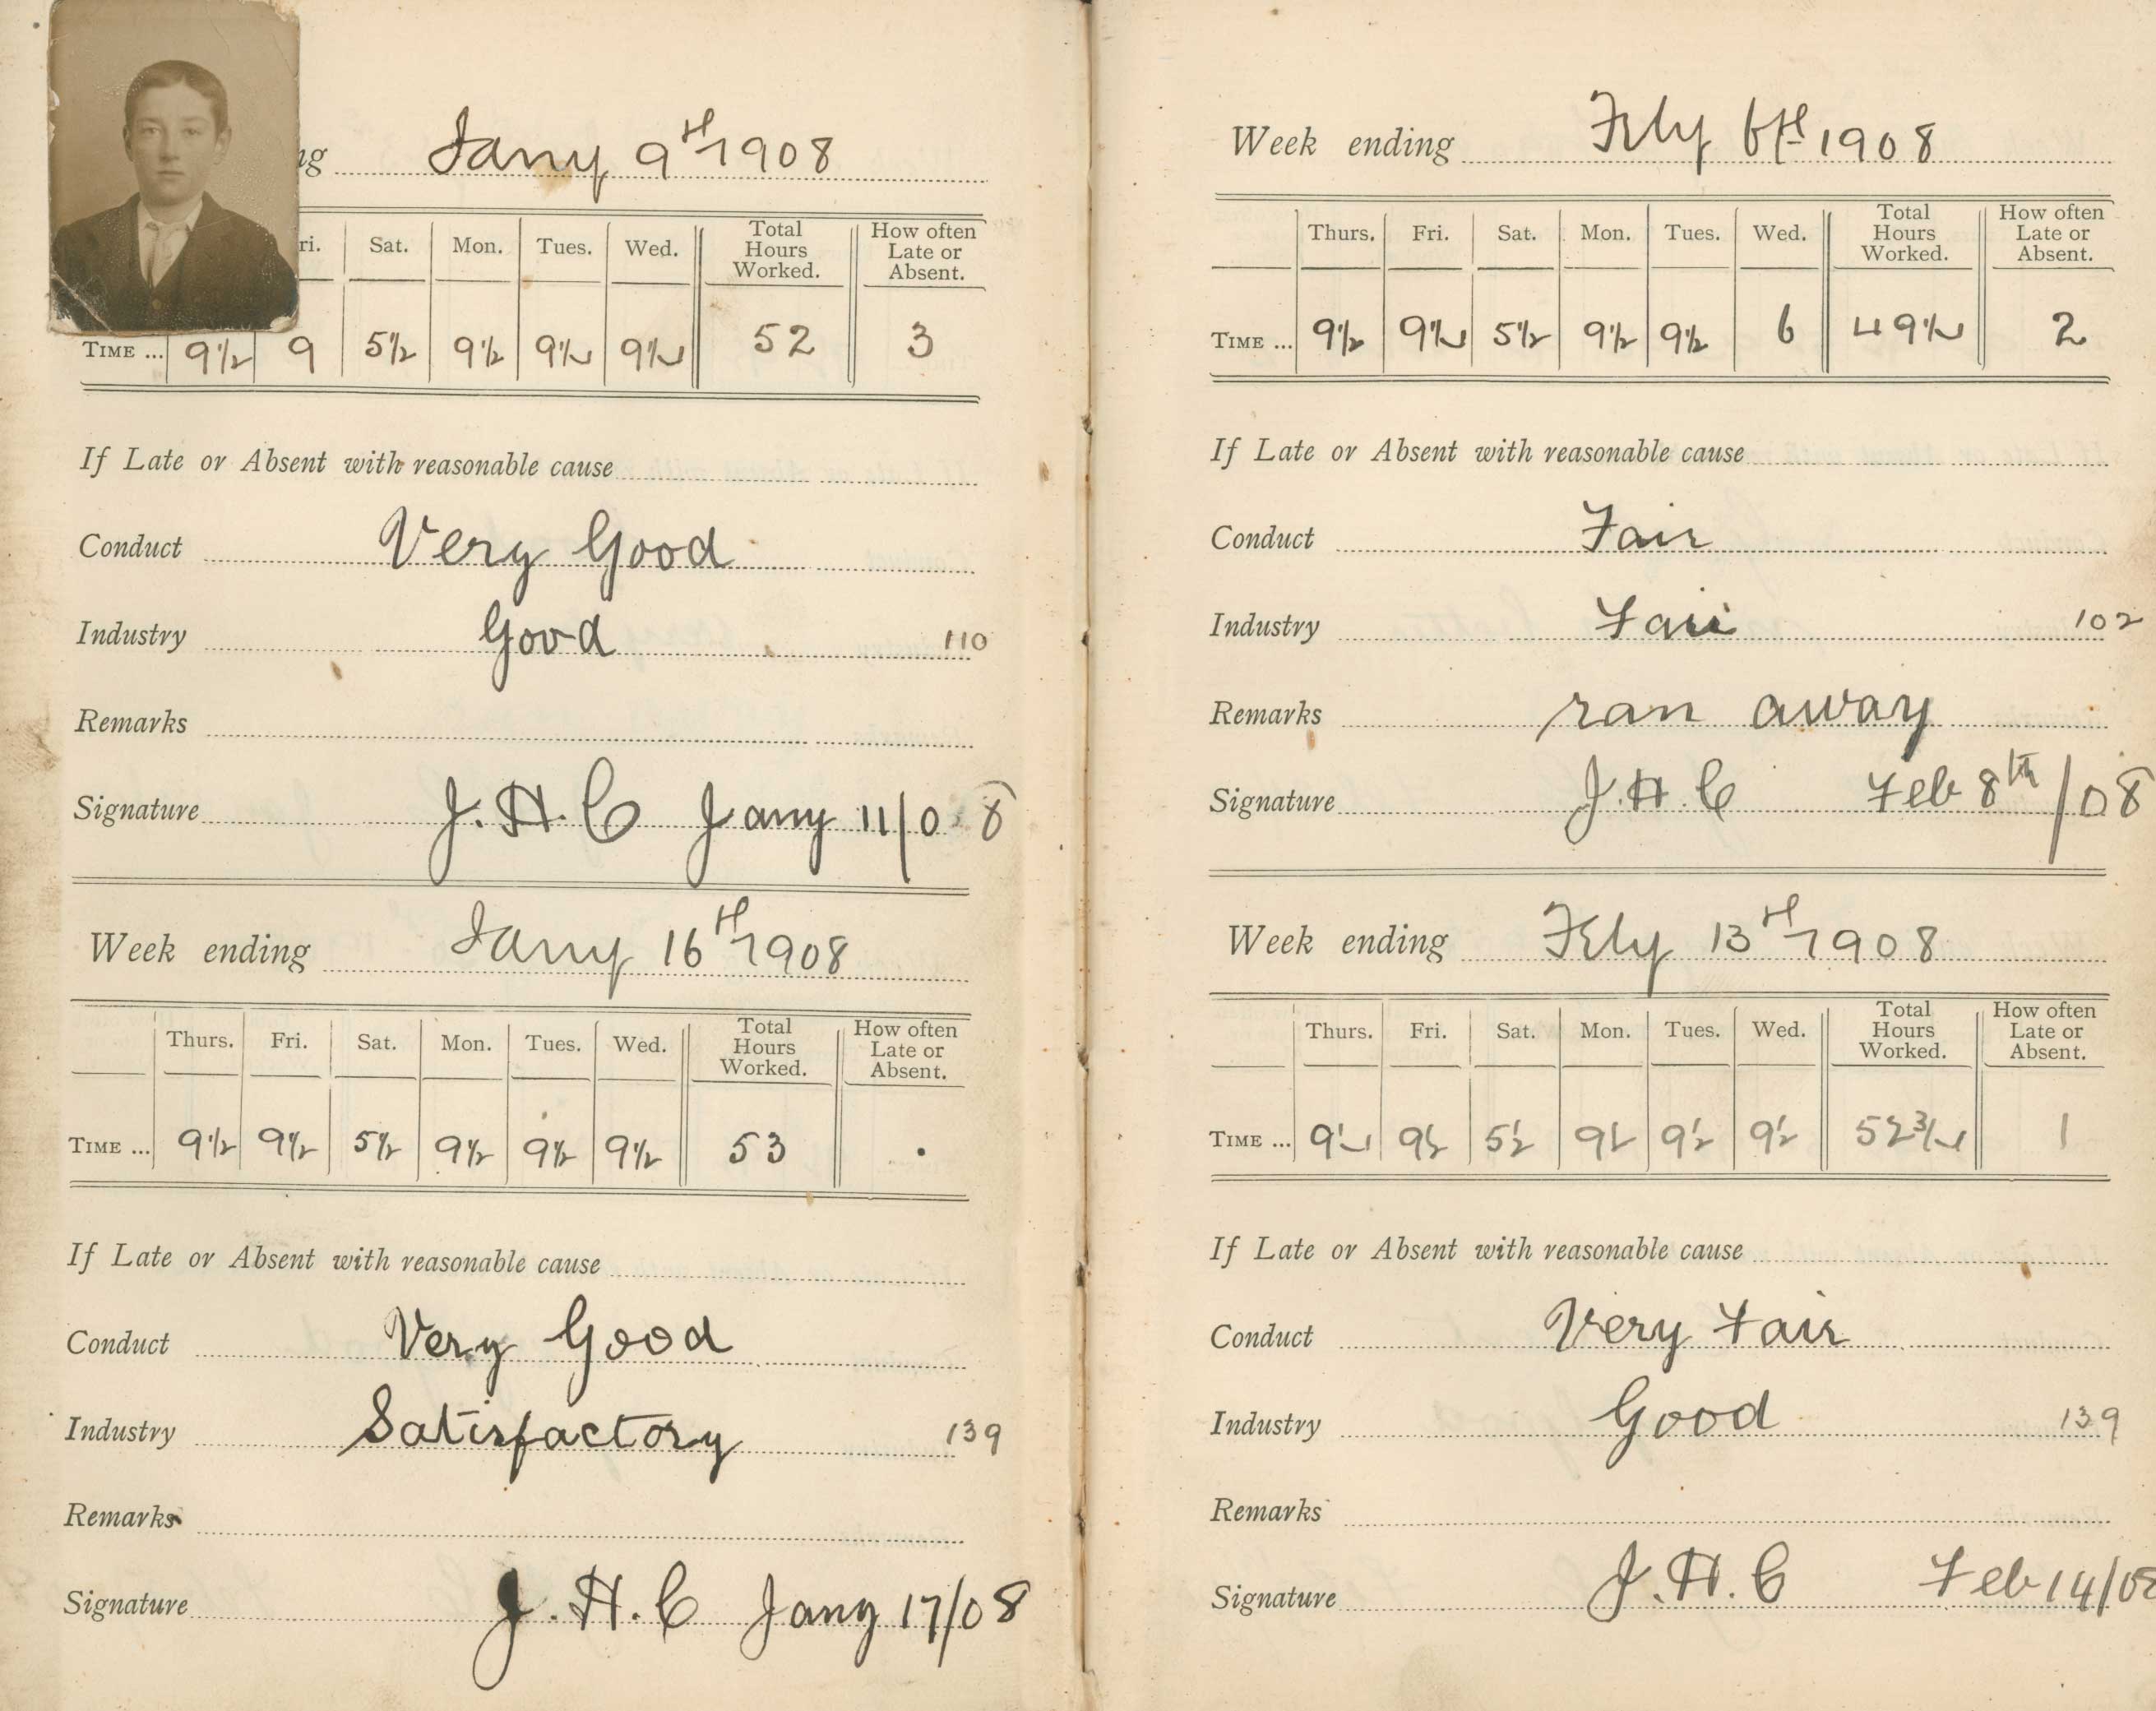 ng Jany 9th 1908
ri. Sat. Mon. Tues. Wed. Total Hours Worked. How often Late or Absent.
TIME ... 9½ 9 5½ 9½ 9½ 9½ 52 3
If Late or Absent with reasonable cause
Conduct Very Good
Industry Good 110
Remarks
Signature J. H. C Jany 11/08
Week ending Jany 16th 1908
Thurs. Fri. Sat. Mon. Tues. Wed. Total Hours Worked. How often Late or Absent.
TIME ... 9½ 9½ 5½ 9½ 9½ 9½ 53 .
If Late or Absent with reasonable cause
Conduct Very Good
Industry Satisfactory 139
Remarks
Signature J. H. C Jany 17/08
Week ending Feby 6th 1908
Thurs. Fri. Sat. Mon. Tues. Wed. Total Hours Worked. How often Late or Absent.
TIME ... 9½ 9½ 5½ 9½ 9½ 6 49½ 2
If Late or Absent with reasonable cause
Conduct Fair
Industry Fair 102
Remarks ran away
Signature J. H. C Feb 8th/08
Week ending Feby 13th 1908
Thurs. Fri. Sat. Mon. Tues. Wed. Total Hours Worked. How often Late or Absent.
TIME ... 9½ 9½ 5½ 9½ 9½ 9½ 52¾ 1
If Late or Absent with reasonable cause
Conduct Very Fair
Industry Good 139
Remarks
Signature J. H. C Feb 14/08